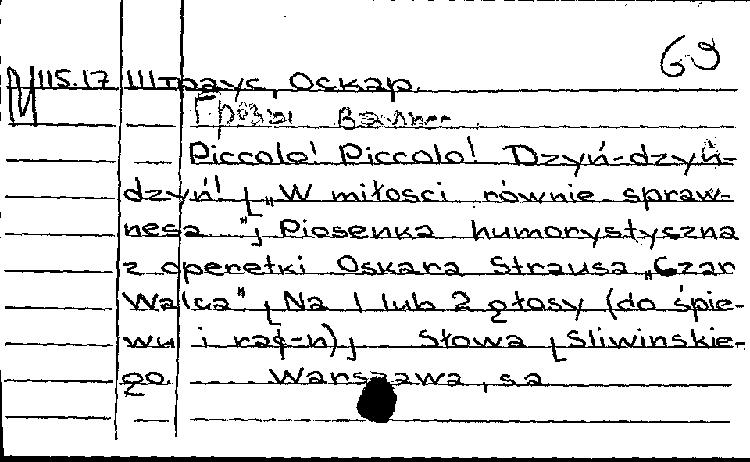 69
М115.17 Штраус, Оскар.
Грёзы вальса
Piccolo! Piccolo! Dzyń-dzyń-
dzyń! [„W miłości równie spraw-
nesa"] Piosenka humorystyczna
z operetki Oskara Strausa „Czar
Walca" [Na 1 lub 2 głosy (do śpie-
wu i raф-n)] Słowa [Sliwinskie-
go. .... Warszawa, sa